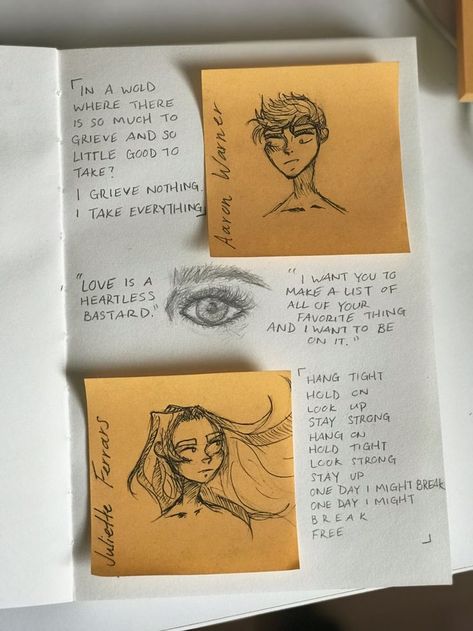 IN A WOLD
WHERE THERE
IS SO MUCH TO
GRIEVE AND SO
LITTLE GOOD TO
TAKE?
I GRIEVE NOTHING.
I TAKE EVERYTHING
Aaron Warner
"LOVE IS A
HEARTLESS
BASTARD."
"I WANT YOU TO
MAKE A LIST OF
ALL OF YOUR
FAVORITE THING
AND I WANT TO BE
ON IT."
Juliette Ferrars
HANG TIGHT
HOLD ON
LOOK UP
STAY STRONG
HANG ON
HOLD TIGHT
LOOK STRONG
STAY UP
ONE DAY I MIGHT BREAK
ONE DAY I MIGHT
BREAK
FREE